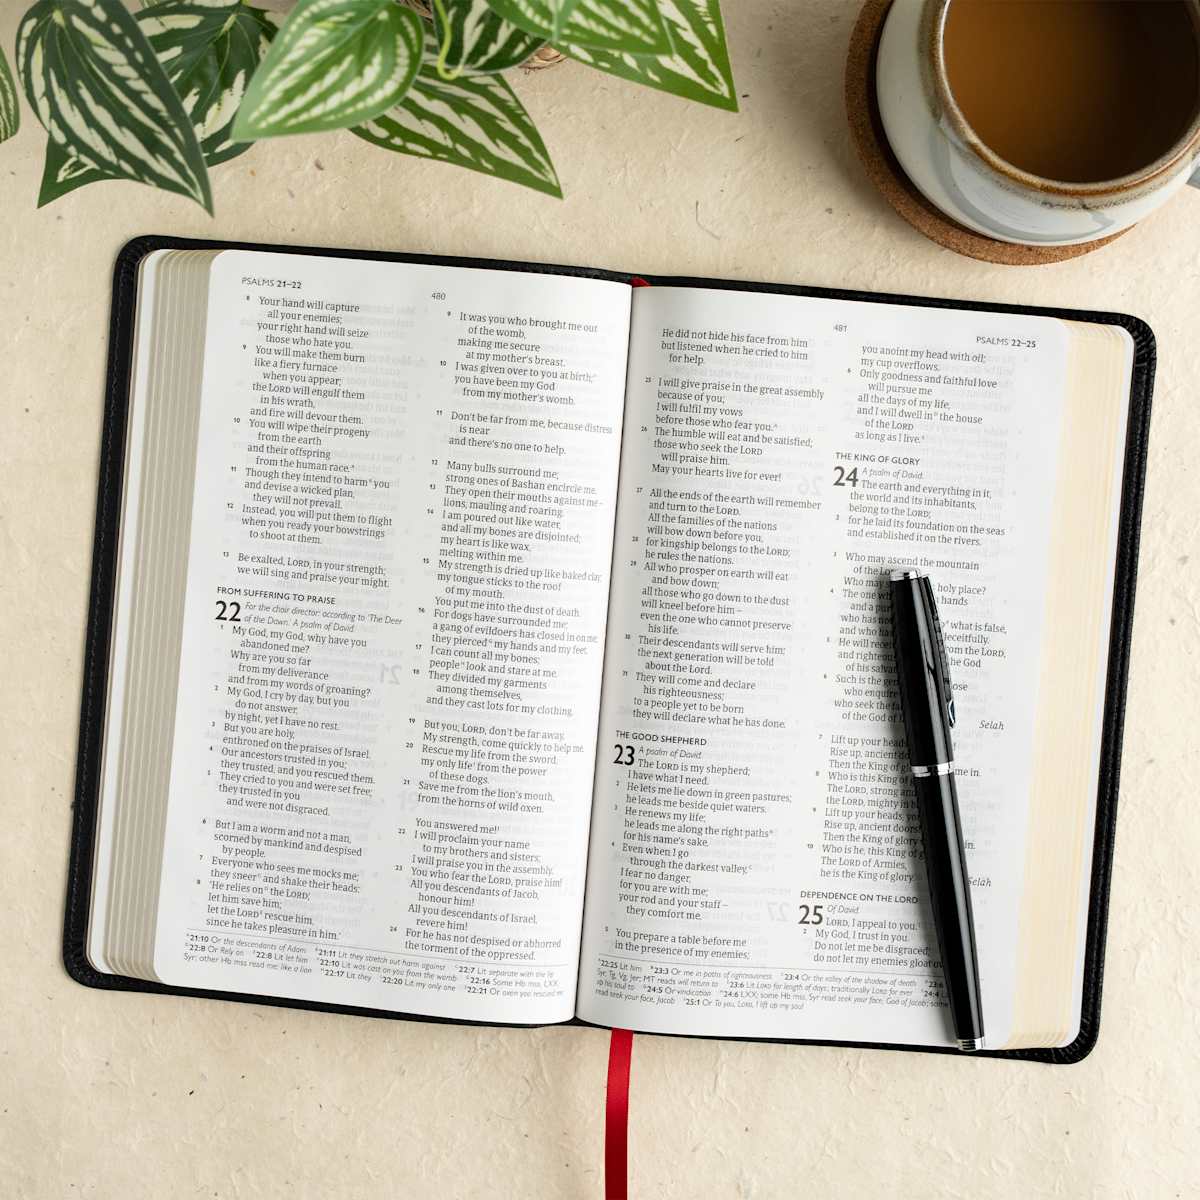 PSALMS 21–22
480
8 Your hand will capture
all your enemies;
your right hand will seize
those who hate you.
9 You will make them burn
like a fiery furnace
when you appear;
the LORD will engulf them
in his wrath,
and fire will devour them.
10 You will wipe their progeny
from the earth
and their offspring
from the human race.ᴬ
11 Though they intend to harmᴮ you
and devise a wicked plan,
they will not prevail.
12 Instead, you will put them to flight
when you ready your bowstrings
to shoot at them.
13 Be exalted, LORD, in your strength;
we will sing and praise your might.
FROM SUFFERING TO PRAISE
22 For the choir director: according to ‘The Deer
of the Dawn.’ A psalm of David.
1 My God, my God, why have you
abandoned me?
Why are you so far
from my deliverance
and from my words of groaning?
2 My God, I cry by day, but you
do not answer,
by night, yet I have no rest.
3 But you are holy,
enthroned on the praises of Israel.
4 Our ancestors trusted in you;
they trusted, and you rescued them.
5 They cried to you and were set free;
they trusted in you
and were not disgraced.
6 But I am a worm and not a man,
scorned by mankind and despised
by people.
7 Everyone who sees me mocks me;
they sneer and shake their heads:
8 ‘He relies on the LORD;
let him save him;
let the LORD rescue him,
since he takes pleasure in him.’
9 It was you who brought me out
of the womb,
making me secure
at my mother’s breast.
10 I was given over to you at birth;
you have been my God
from my mother’s womb.
11 Don’t be far from me, because distress
is near
and there’s no one to help.
12 Many bulls surround me;
strong ones of Bashan encircle me.
13 They open their mouths against me –
lions, mauling and roaring.
14 I am poured out like water,
and all my bones are disjointed;
my heart is like wax,
melting within me.
15 My strength is dried up like baked clay;
my tongue sticks to the roof
of my mouth.
You put me into the dust of death.
16 For dogs have surrounded me;
a gang of evildoers has closed in on me;
they pierced my hands and my feet.
17 I can count all my bones;
people look and stare at me.
18 They divided my garments
among themselves,
and they cast lots for my clothing.
19 But you, LORD, don’t be far away.
My strength, come quickly to help me.
20 Rescue my life from the sword;
my only life from the power
of these dogs.
21 Save me from the lion’s mouth,
from the horns of wild oxen.
You answered me!
22 I will proclaim your name
to my brothers and sisters;
I will praise you in the assembly.
23 You who fear the LORD, praise him!
All you descendants of Jacob,
honour him!
All you descendants of Israel,
revere him!
24 For he has not despised or abhorred
the torment of the oppressed.
21:10 Or the descendants of Adam 21:11 Lit they stretch out harm against 22:7 Lit separate with the lip
22:8 Or Rely on 22:8 Lit let him 22:10 Lit was cast on you from the womb 22:16 Some Hb mss, LXX,
Syr; other Hb mss read me; like a lion 22:17 Lit they 22:20 Lit my only one 22:21 Or oxen you rescued me
481
PSALMS 22–25
He did not hide his face from him
but listened when he cried to him
for help.
25 I will give praise in the great assembly
because of you;
I will fulfil my vows
before those who fear you.ᴬ
26 The humble will eat and be satisfied;
those who seek the LORD
will praise him.
May your hearts live for ever!
27 All the ends of the earth will remember
and turn to the LORD.
All the families of the nations
will bow down before you,
28 for kingship belongs to the LORD;
he rules the nations.
29 All who prosper on earth will eat
and bow down;
all those who go down to the dust
will kneel before him –
even the one who cannot preserve
his life.
30 Their descendants will serve him;
the next generation will be told
about the Lord.
31 They will come and declare
his righteousness;
to a people yet to be born
they will declare what he has done.
THE GOOD SHEPHERD
23 A psalm of David.
The LORD is my shepherd;
I have what I need.
2 He lets me lie down in green pastures;
he leads me beside quiet waters.
3 He renews my life;
he leads me along the right pathsᴮ
for his name’s sake.
4 Even when I go
through the darkest valley,ᶜ
I fear no danger,
for you are with me;
your rod and your staff –
they comfort me.
5 You prepare a table before me
in the presence of my enemies;
you anoint my head with oil;
my cup overflows.
6 Only goodness and faithful love
will pursue me
all the days of my life,
and I will dwell in the house
of the LORD
as long as I live.
THE KING OF GLORY
24 A psalm of David.
The earth and everything in it,
the world and its inhabitants,
belong to the LORD;
2 for he laid its foundation on the seas
and established it on the rivers.
3 Who may ascend the mountain
of the
Who may holy place?
4 The one hands
and a
who has not what is false,
and who has deceitfully.
5 He will from the LORD,
and the God
of his
6 Such is the
who
who seek the
of the God of
Selah
7 Lift up your heads
Rise up, ancient
Then the King of me in.
8 Who is this King of
The LORD, strong
the LORD, mighty in
9 Lift up your heads,
Rise up, ancient doors!
Then the King of glory in.
10 Who is he, this King of
The LORD of Armies,
he is the King of glory. Selah
DEPENDENCE ON THE LORD
25 Of David.
LORD, I appeal to you.
2 My God, I trust in you.
Do not let me be disgraced;
do not let my enemies gloat
22:25 Lit him 23:3 Or me in paths of righteousness 23:4 Or the valley of the shadow of death 23:6
Syr, Tg, Vg, Jer; MT reads will return to 23:6 Lit LORD for length of days; traditionally LORD for ever 24:4
up his soul to 24:5 Or vindication 24:6 LXX; some Hb mss, Syr read seek your face, God of Jacob; some
read seek your face, Jacob 25:1 Or To you, LORD, I lift up my soul